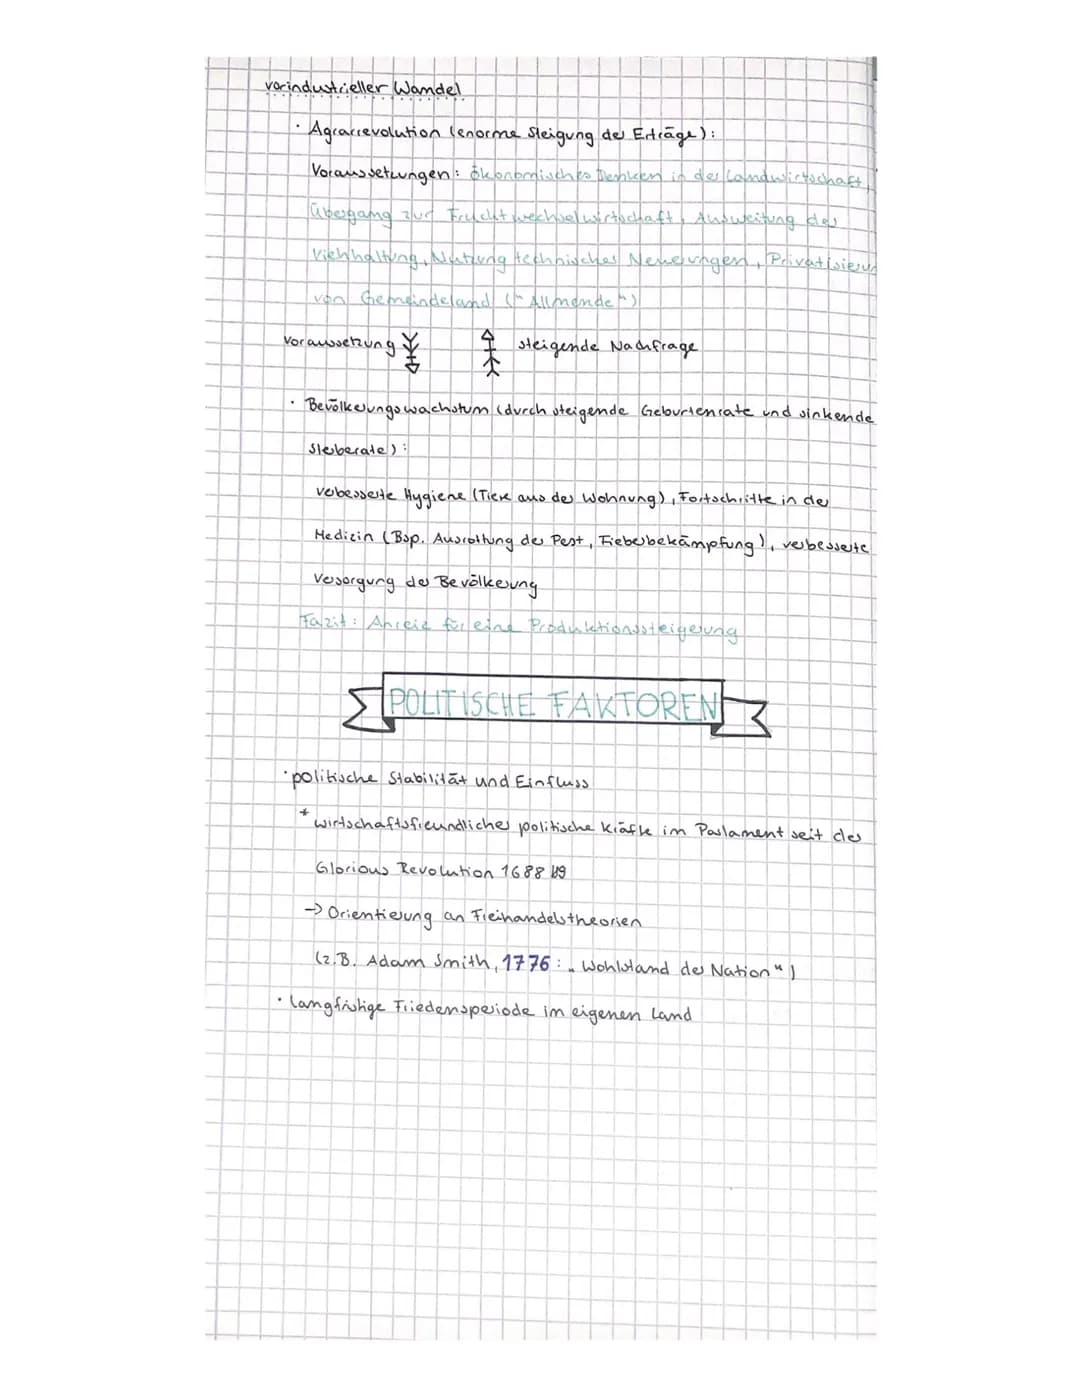 vorindustrieller Wandel
· Agrarrevolution (enorme Steigung der Erträge):
Voraussetzungen: ökonomisches Denken in der Landwirtschaft,
Übergang zur Fruchtwechselwirtschaft, Ausweitung der
Viehhaltung, Nutzung technischer Neuerungen, Privatisierun
von Gemeindeland ("Allmende")
Voraussetzung steigende Nachfrage
· Bevölkerungswachstum (durch steigende Geburtenrate und sinkende
Sterberate):
verbesserte Hygiene (Tiere aus der Wohnung), Fortschritte in der
Medizin (Bsp. Ausrottung der Pest, Fieberbekämpfung), verbesserte
Versorgung der Bevölkerung
Fazit: Anreiz für eine Produktionssteigerung
POLITISCHE FAKTOREN
· politische Stabilität und Einfluss
* wirtschaftsfreundliche politische Kräfte im Parlament seit der
Glorious Revolution 1688/89
→ Orientierung an Freihandelstheorien
(z.B. Adam Smith, 1776: „Wohlstand der Nation")
· langfristige Friedensperiode im eigenen Land